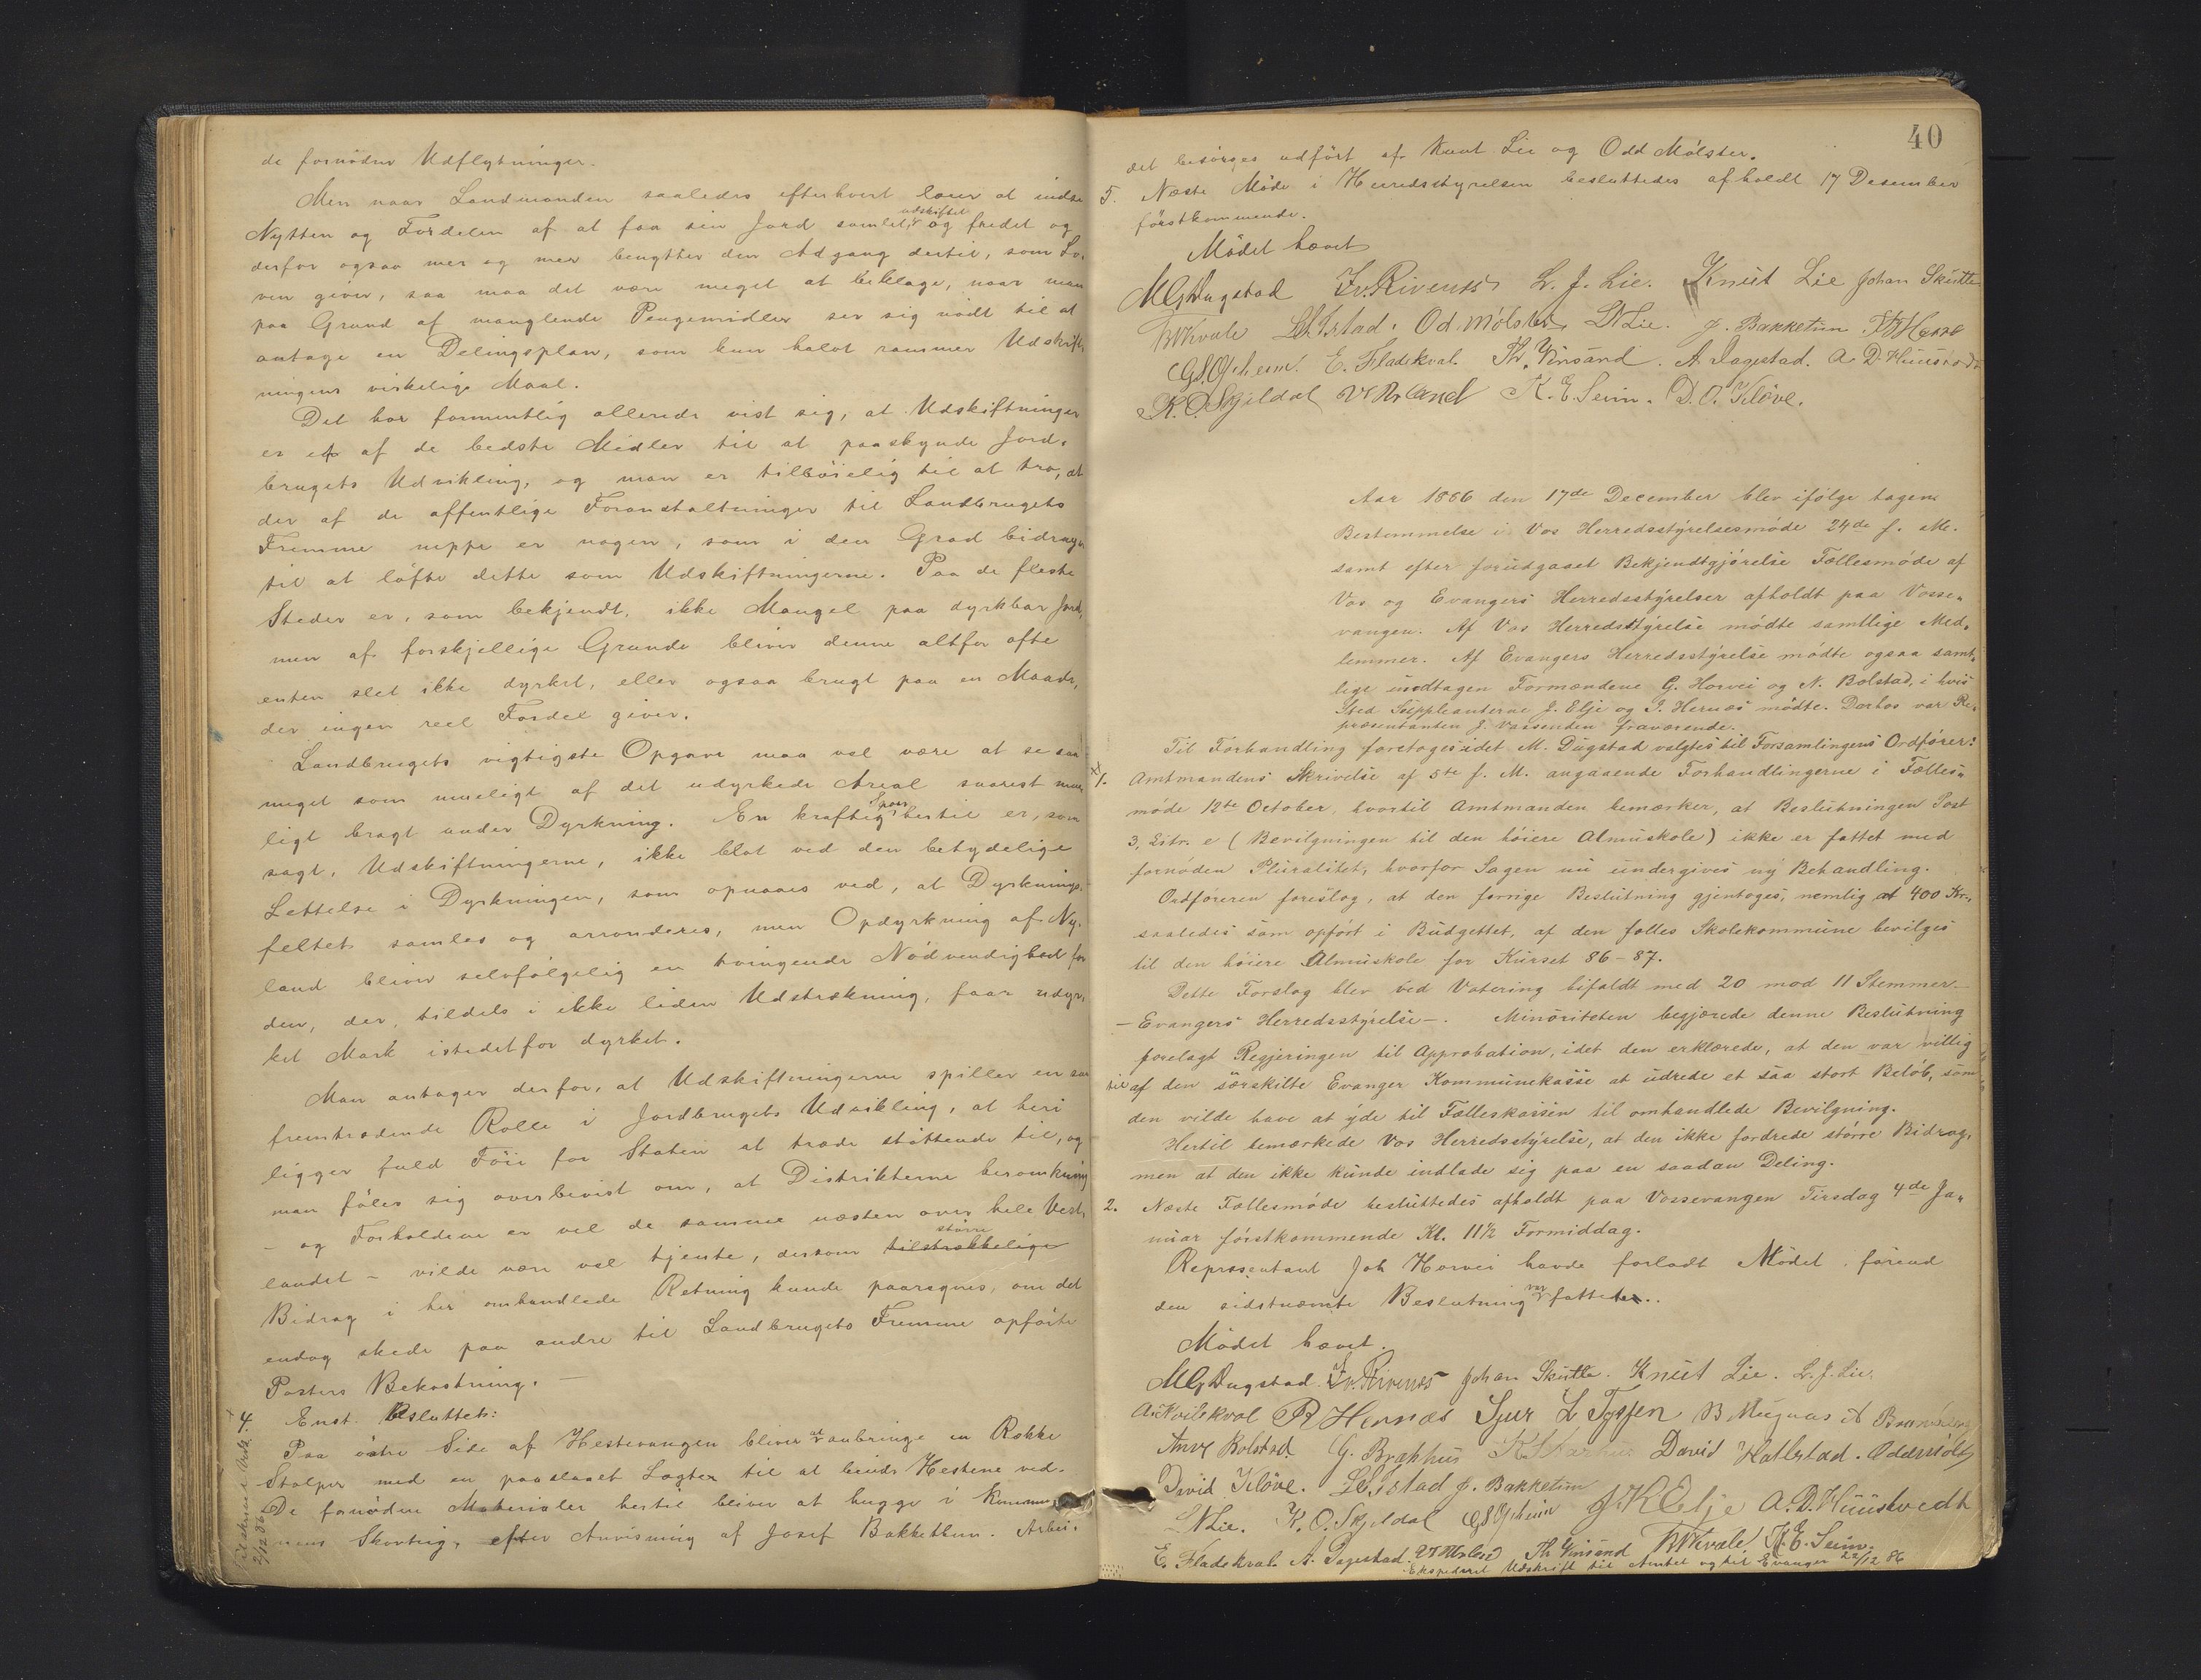 de fornödne Udflytninger.
Men naar Landmanden saaledes efterhvert lærer at indse
Nytten og Fordelen af at faa sin Jord samlet, udskiftet og fredet og
derfor ogsaa mer og mer benytter den Adgang dertil, som Lo-
ven giver, saa maa det være meget at beklage, naar man
paa Grund af manglende Pengemidler ser sig nödt til at
antage en Delingsplan, som kun halvt rammer Udskift-
ningens virkelige Maal.
Det har formentlig allerede vist sig, at Udskiftninger
er et af de bedste Midler til at paaskynde Jord-
brugets Udvikling, og man er tilböielig til at tro, at
der af de offentlige Foranstaltninger til Landbrugets
Fremme neppe er nogen, som i den Grad bidrager
til at löfte dette som Udskiftningerne. Paa de fleste
Steder er, som bekjendt, ikke Mangel paa dyrkbar Jord,
men af forskjellige Grunde bliver denne altfor ofte
enten slet ikke dyrket, eller ogsaa brugt paa en Maade,
der ingen reel Fordel giver.
Landbrugets vigtigste Opgave maa vel være at se saa
meget som mueligt af det udyrkede Areal snarest mue-
ligt bragt under Dyrkning. En kraftig Spore hertil er, som
sagt, Udskiftningerne, ikke blot ved den betydelige
Lettelse i Dyrkningen, som opnaaes ved, at Dyrknings-
feltet samles og arronderes, men Opdyrkning af Ny-
land bliver selvfölgelig en tvingende Nödvendighed for
den, der, tildels i ikke liden Udstrækning, faar udyr-
ket Mark istedetfor dyrket.
Man antager derfor, at Udskiftningerne spiller en saa
fremtrædende Rolle i Jordbrugets Udvikling, at heri
ligger fuld Föie for Staten at træde stöttende til, og
man föler sig overbevist om, at Distrikterne heromkring
- og Forholdene er vel de samme næsten over hele Vest-
landet - vilde være vel tjente, dersom tilstrækkelige större
Bidrag i her omhandlede Retning kunde paaregnes, om det
endog skede paa andre til Landbrugets Fremme opförte
Posters Bekostning. -
4. Enst. Besluttet:
Paa östre Side af Hestevangen bliver at anbringe en Række
Stolper med en paaslaaet Lægter til at binde Hestene ved.
De fornödne Materialer hertil bliver at hugge i Kommu-
nens Skovteig, efter Anvisning af Josef Bakkethun. Arbei-
40
det besörges udfört af Knut Lie og Odd Mölster.
5. Næste Möde i Herredsstyrelsen besluttedes afholdt 17 Desember
förstkommende.
Mödet hævet
MGDugstad Iv. Rivenæs L. J. Lie. Knut Lie Johan Skutle
BKvale Od. Mölster LNLie. J. Bakketun
GSOpheim. E. Fladekval. Th. Vinsand. A. Dagestad. A. D. Huustvedt
K. O. Skjeldal K. E. Seim. D. O. Klöve.
Aar 1886 den 17de December blev ifölge tagen
Bestemmelse i Vos Herredsstÿrelsesmöde 24de f. M.
samt efter forudgaaet Bekjendtgjörelse Fællesmöde af
Vos og Evangers Herredsstÿrelser afholdt paa Vosse-
vangen. Af Vos Herredsstÿrelse mödte samtlige Med-
lemmer. Af Evangers Herredsstÿrelse mödte ogsaa samt-
lige undtagen Formændene G. Horvei og N. Bolstad, i hvis
Sted Suppleanterne J. Elje og I. Hernæs mödte. Derhos var Re-
præsentanten J. Vassenden fraværende.
Til Forhandling foretoges idet M. Dugstad valgtes til Forsamlingens Ordförer:
1. Amtmandens Skrivelse af 5te f. M. angaaende Forhandlingerne i Fælles-
möde 12te October, hvortil Amtmanden bemærker, at Beslutningen Post
3, Litr. e (Bevilgningen til den höiere Almuskole) ikke er fattet med
fornöden Pluralitet, hvorfor Sagen nu undergives nÿ Behandling.
Ordföreren foreslog, at den forrige Beslutning gjentoges, nemlig at 400 Kr.,
saaledes som opfört i Budgettet, af den fælles Skolekommune bevilges
til den höiere Almuskole for Kurset 86-87.
Dette Forslag blev ved Votering bifaldt med 20 mod 11 Stemmer-
- Evangers Herredsstÿrelse -. Minoriteten begjærede denne Beslutning
forelagt Regjeringen til Approbation, idet den erklærede, at den var villig
til af den særskilte Evanger Kommunekasse at udrede et saa stort Belöb, som
den vilde have at ÿde til Fælleskassen til omhandlede Bevilgning.
Hertil bemærkede Vos Herredsstÿrelse, at den ikke fordrede större Bidrag,
men at den ikke kunde indlade sig paa en saadan Deling.
2. Næste Fællesmöde besluttedes afholdt paa Vossevangen Tirsdag 4de Ja-
nuar förstkommende Kl. 11½ Formiddag.
Repræsentant Joh Horvei havde forladt Mödet, förend
den sidstnæmte Beslutning var fattet.
Mödet hævet.
MGDugstad. Iv. Rivenæs Johan Skutle. Knut Lie. L. J. Lie.
A. Kvilekval R Hernæs Sjur L Tossen B Mugaas
Anve Bolstad. G. Brakhus David Hallstad. Odd Mölster
David Klöve. J. Bakketun
LNLie. K. O. Skjeldal GSOpheim J. K Elje A. D. Huustvedt
E. Fladekval A. Dagestad. Th Vinsand BKvale K. E. Seim.
Ekspederet Udskrift til Amtet og til Evanger 22/12 86